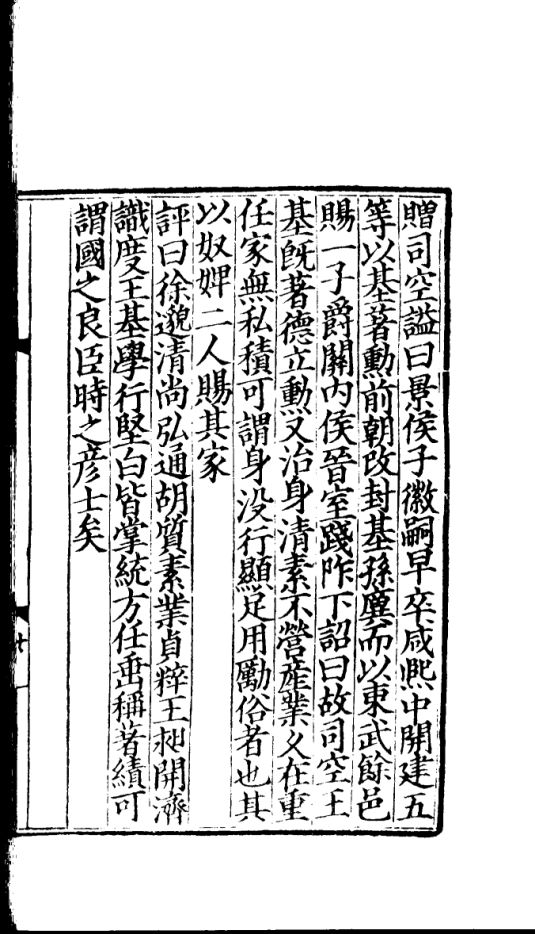 贈司空謚曰景侯子徽嗣早卒咸熙中開建五
等以基著勳前朝改封基孫廙而以東武餘邑
賜一子爵關內侯晉室踐阼下詔曰故司空王
基旣著德立勳又治身清素不營産業久在重
任家無私積可謂身没行顯足用勵俗者也其
以奴婢二人賜其家
評曰徐邈清尚弘通胡質素業貞粹王昶開濟
識度王基學行堅白皆掌統方任垂稱著績可
謂國之良臣時之彦士矣